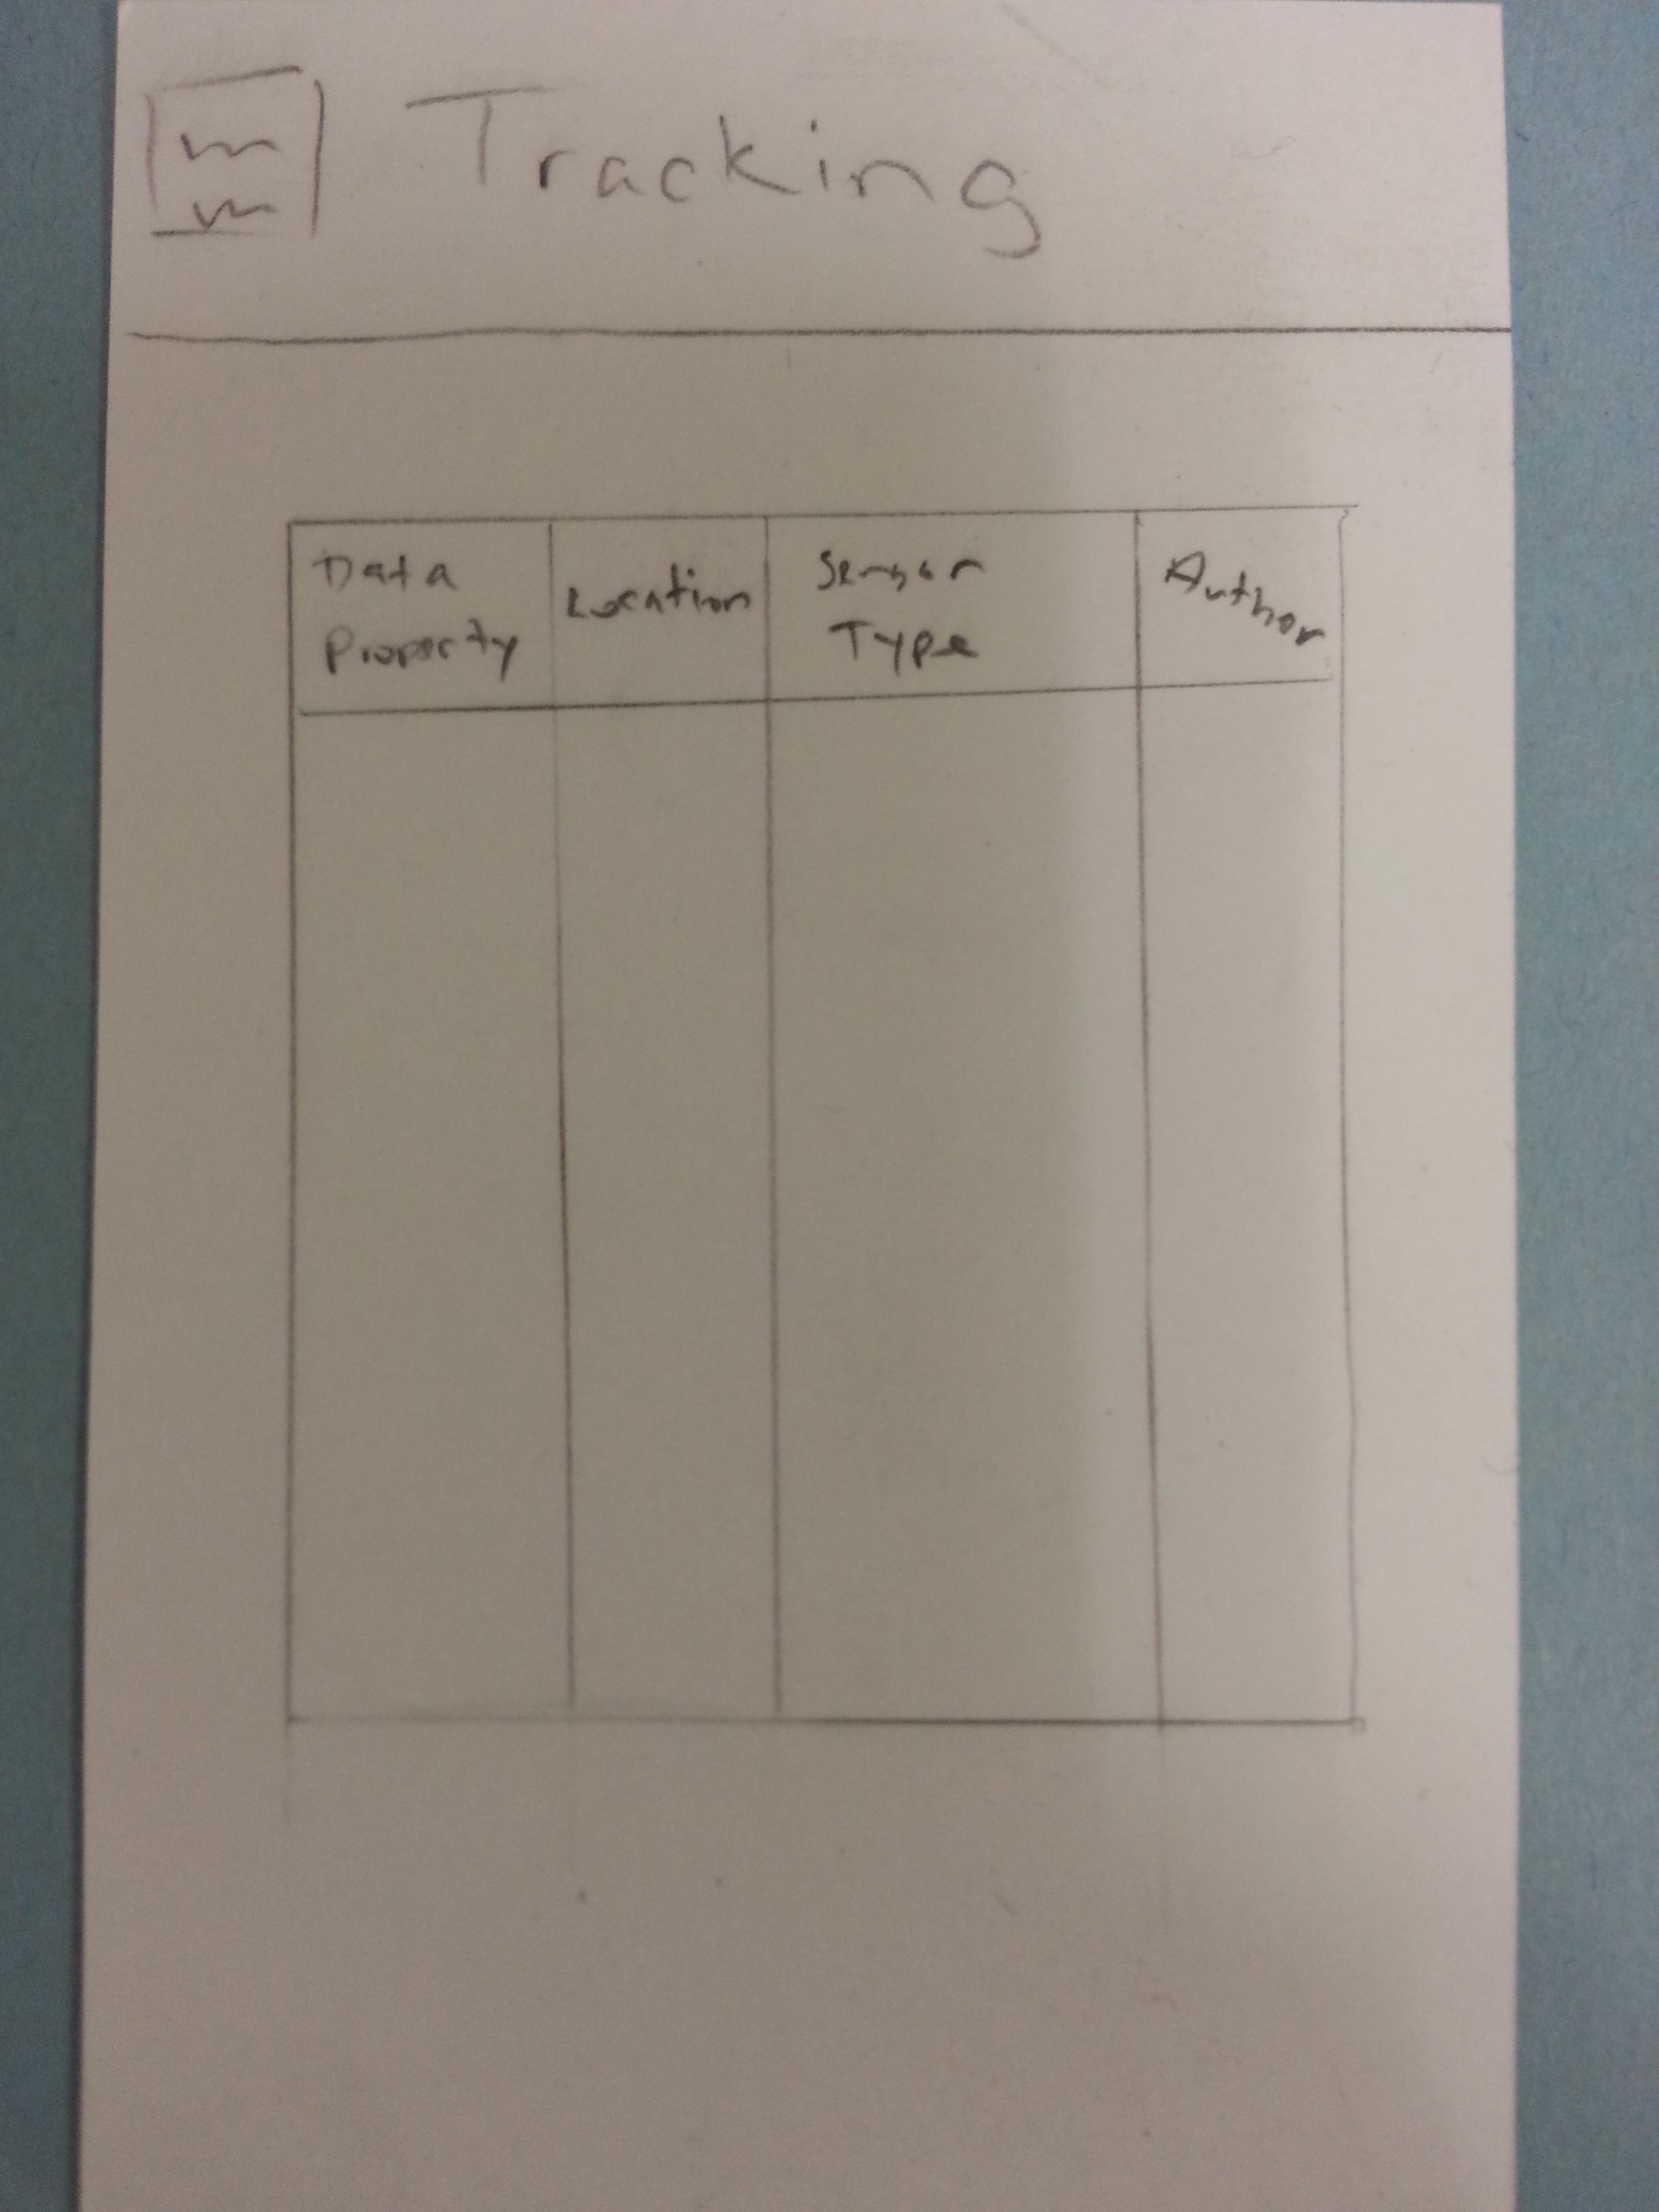 Tracking
Data
Property
Location
Sensor
Type
Author